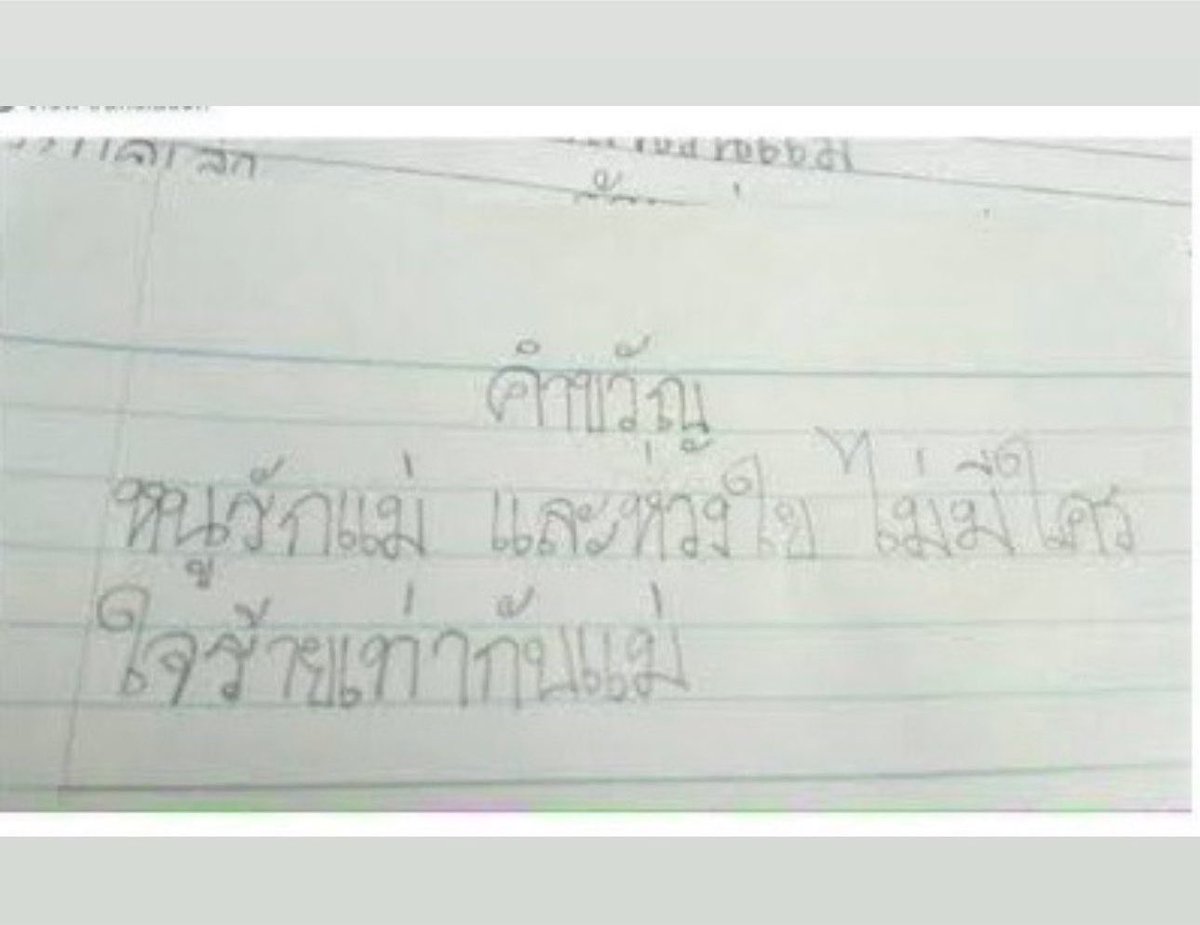 คำขวัญ
หนูรักแม่ และห่วงใย ไม่มีใคร
ใจร้ายเท่ากับแม่